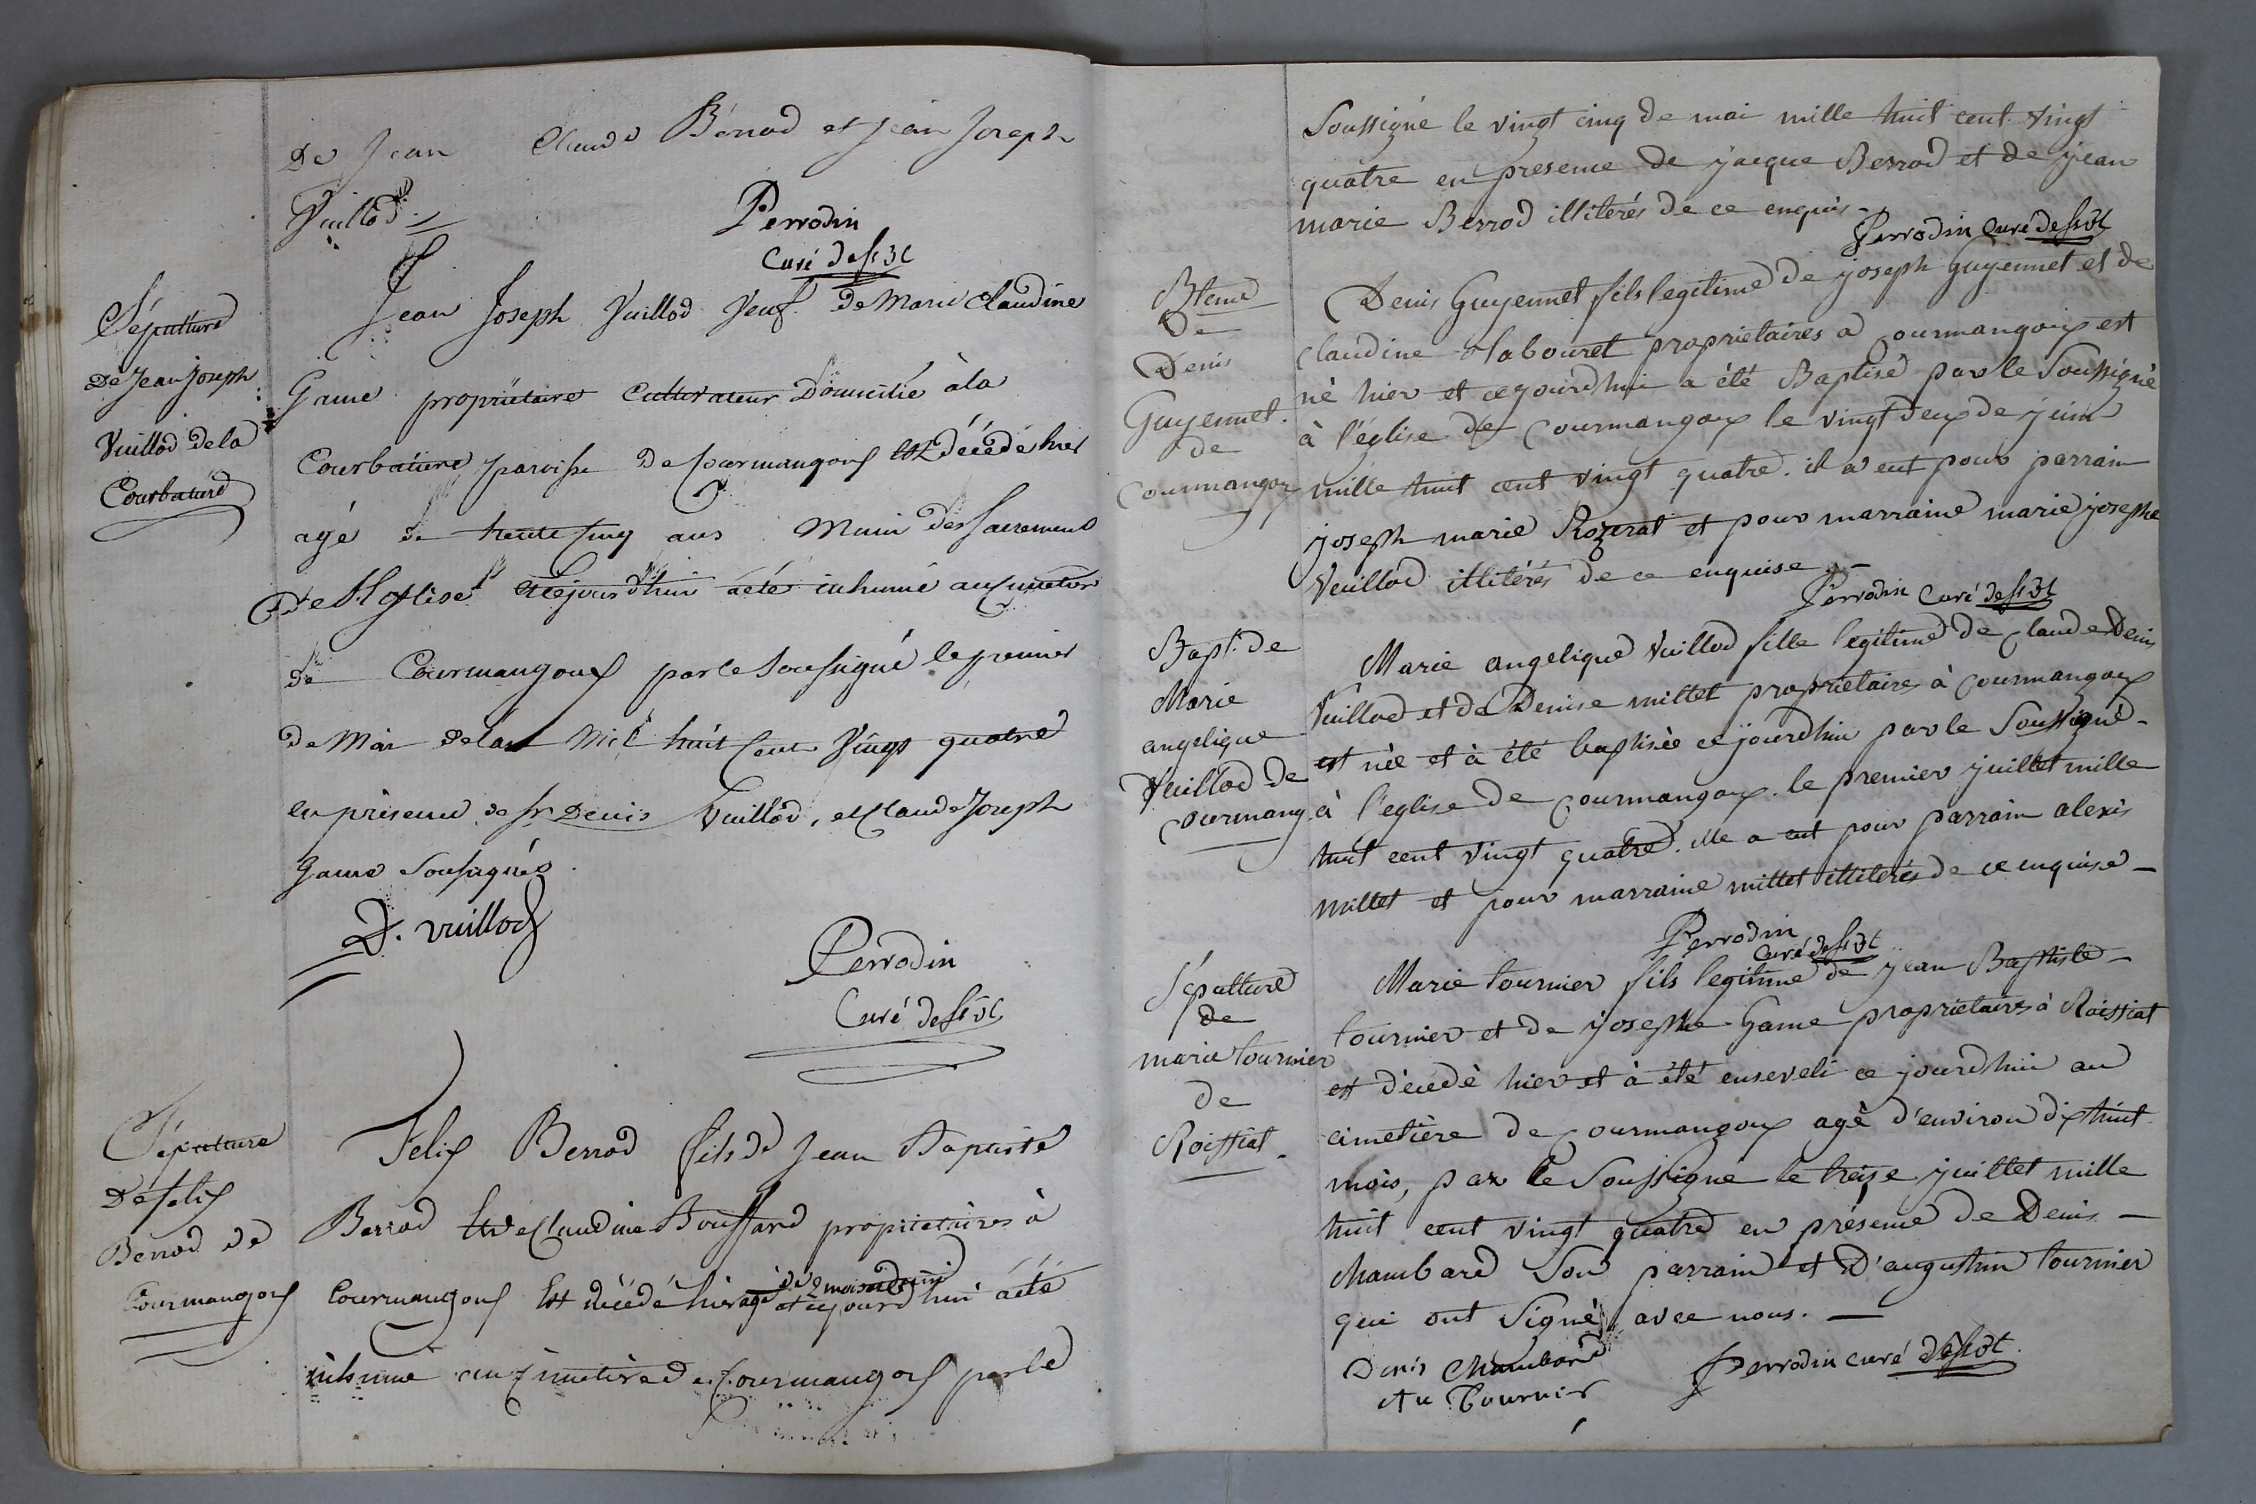 De Jean Claude Bérrod et Jean Joseph
Vuillod
Perrodin
Curé de
Sépulture
De Jean Joseph
Vuillod de la
Courbature
Jean Joseph Vuillod Veuf de Marie Claudine
Game propriétaire Cultivateur Domicilié à la
Courbature paroisse De Courmangoux Est décédé hier
agé de trente cinq ans Muni des Sacrements
De l'Eglise et cejourd'hui a été inhumé au cimetiere
de Courmangoux par le soussigné le premier
de Mai de l'an Mil huit Cent Vingt quatre
en présence de sr Denis Vuillod, et Claude Joseph
Game Soussignés
D. Vuillod
Perrodin
Curé de
Sépulture
De felix
Berrod de
Courmangoux
Felix Berrod fils de Jean Baptiste
Berrod et de Claudine Bouffard propriétaires à
Courmangoux Est décédé hier agé de 2 mois et cejourd'hui a été
inhumé au Cimetière de Courmangoux par le
Soussigné le vingt cinq de mai mille huit cent vingt
quatre en presence de jacque Berrod et de jean
marie Berrod illiterés de ce enquis -
Perrodin Curé de
Bteme
De
Denis
Guyennet
de
Courmangoux
Denis Guyennet fils legitime de joseph Guyennet et de
Claudine Labouret proprietaires a Courmangoux est
né hier et cejourdhui a été Baptisé par le Soussigné
à l'église de Courmangoux le vingt deux de juin
mille huit cent vingt quatre. il a eut pour parrain
joseph marie Rozerat et pour marraine marie josephe
Veuillod illitérés de ce enquise -
Perrodin Curé de
Bapt. de
Marie
angelique
Veuillod de
Courmang.
Marie angelique Vuillod fille legitime de Claude Denis
Vuillod et de Denise millet proprietaires à Courmangoux
est née et à été baptisée ce jourdhui par le Soussigné -
à l'eglise de Courmangoux. le premier juillet mille
huit cent vingt quatre. elle a eut pour parrain alexis
millet et pour marraine millet illiterés de ce enquise -
Perrodin
Curé de
Sépulture
de
marie tournier
de
Roissiat
Marie tournier fils legitime de jean Baptiste -
tournier et de josephe Game proprietaires à Roissiat
est décedé hier et à été enseveli ce jourdhui au
cimetière de Courmangoux agé d'environ dix huit
mois, par le Soussigné le treise juillet mille
huit cent vingt quatre en présence de Denis -
Chambard Son parrain et D'augustin tournier
qui ont Signé avec nous. -
Denis Chambard
Au Tournier
Perrodin curé de